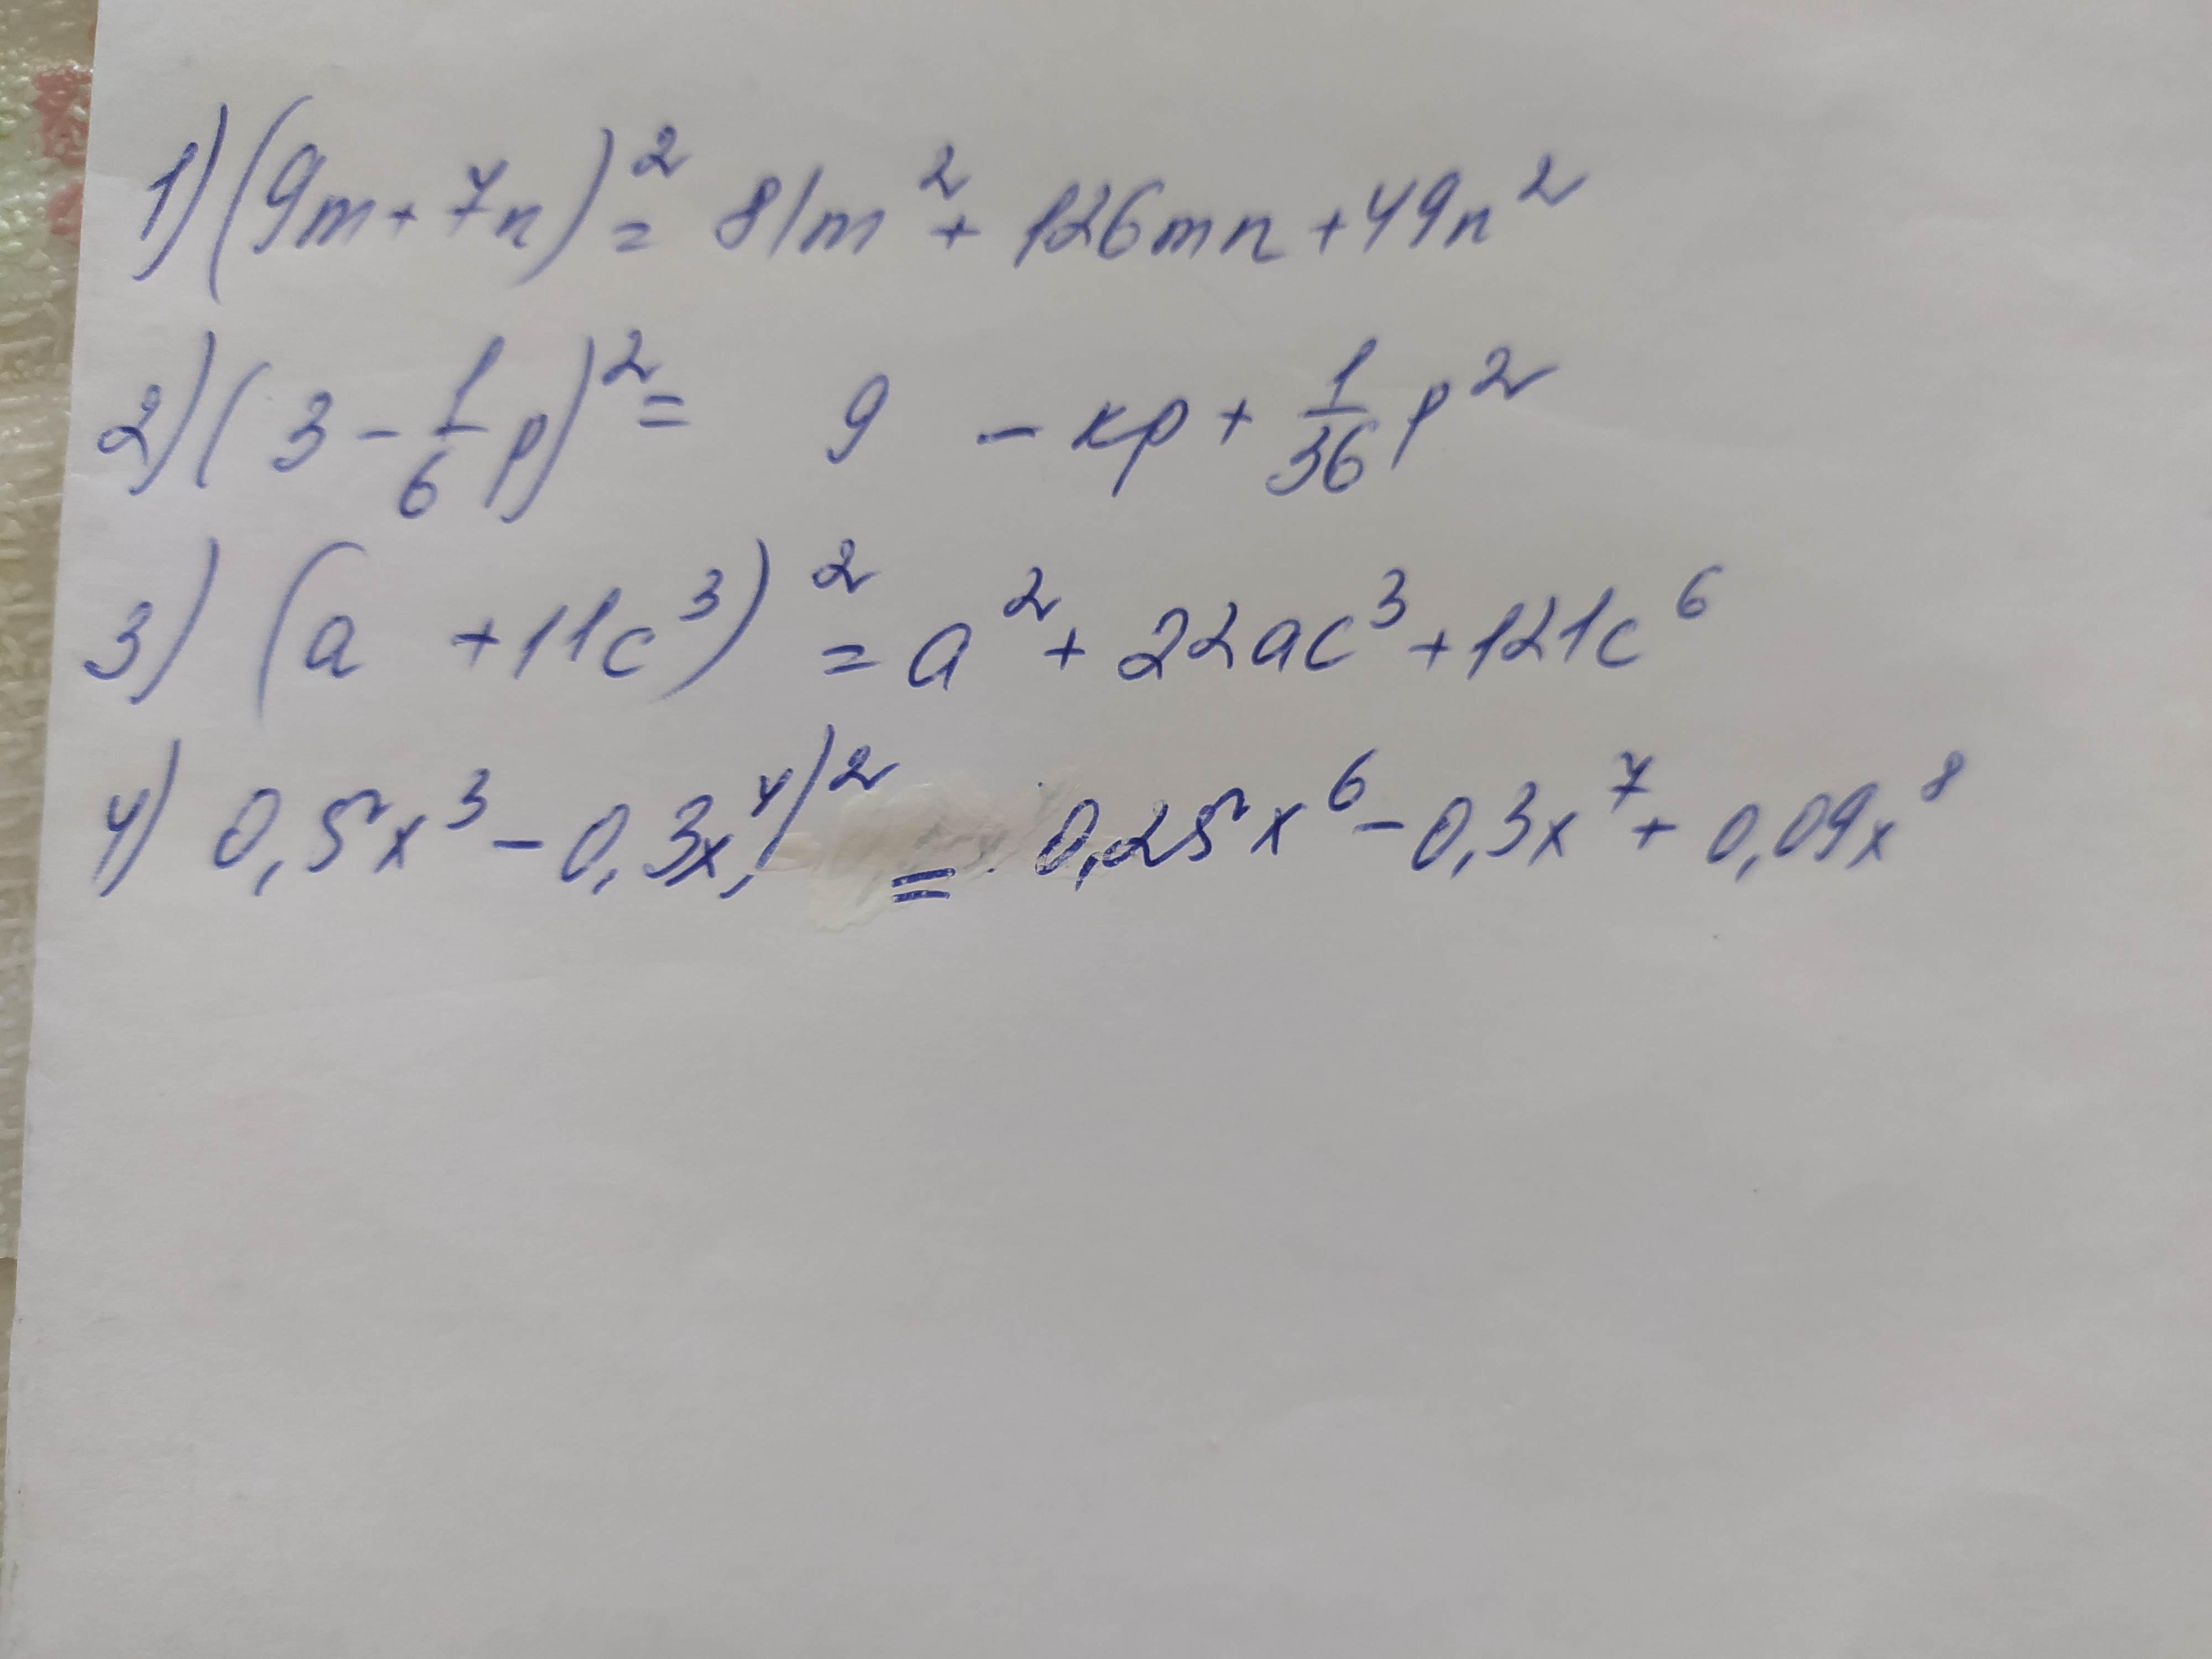 1) (9m + 7n)² = 81m² + 126mn + 49n²
2) (3 - 1/6 p)² = 9 - кp + 1/36 p²
3) (a + 11c³)² = a² + 22ac³ + 121c⁶
4) 0,5x³ - 0,3x⁴)² = 0,25x⁶ - 0,3x⁷ + 0,09x⁸